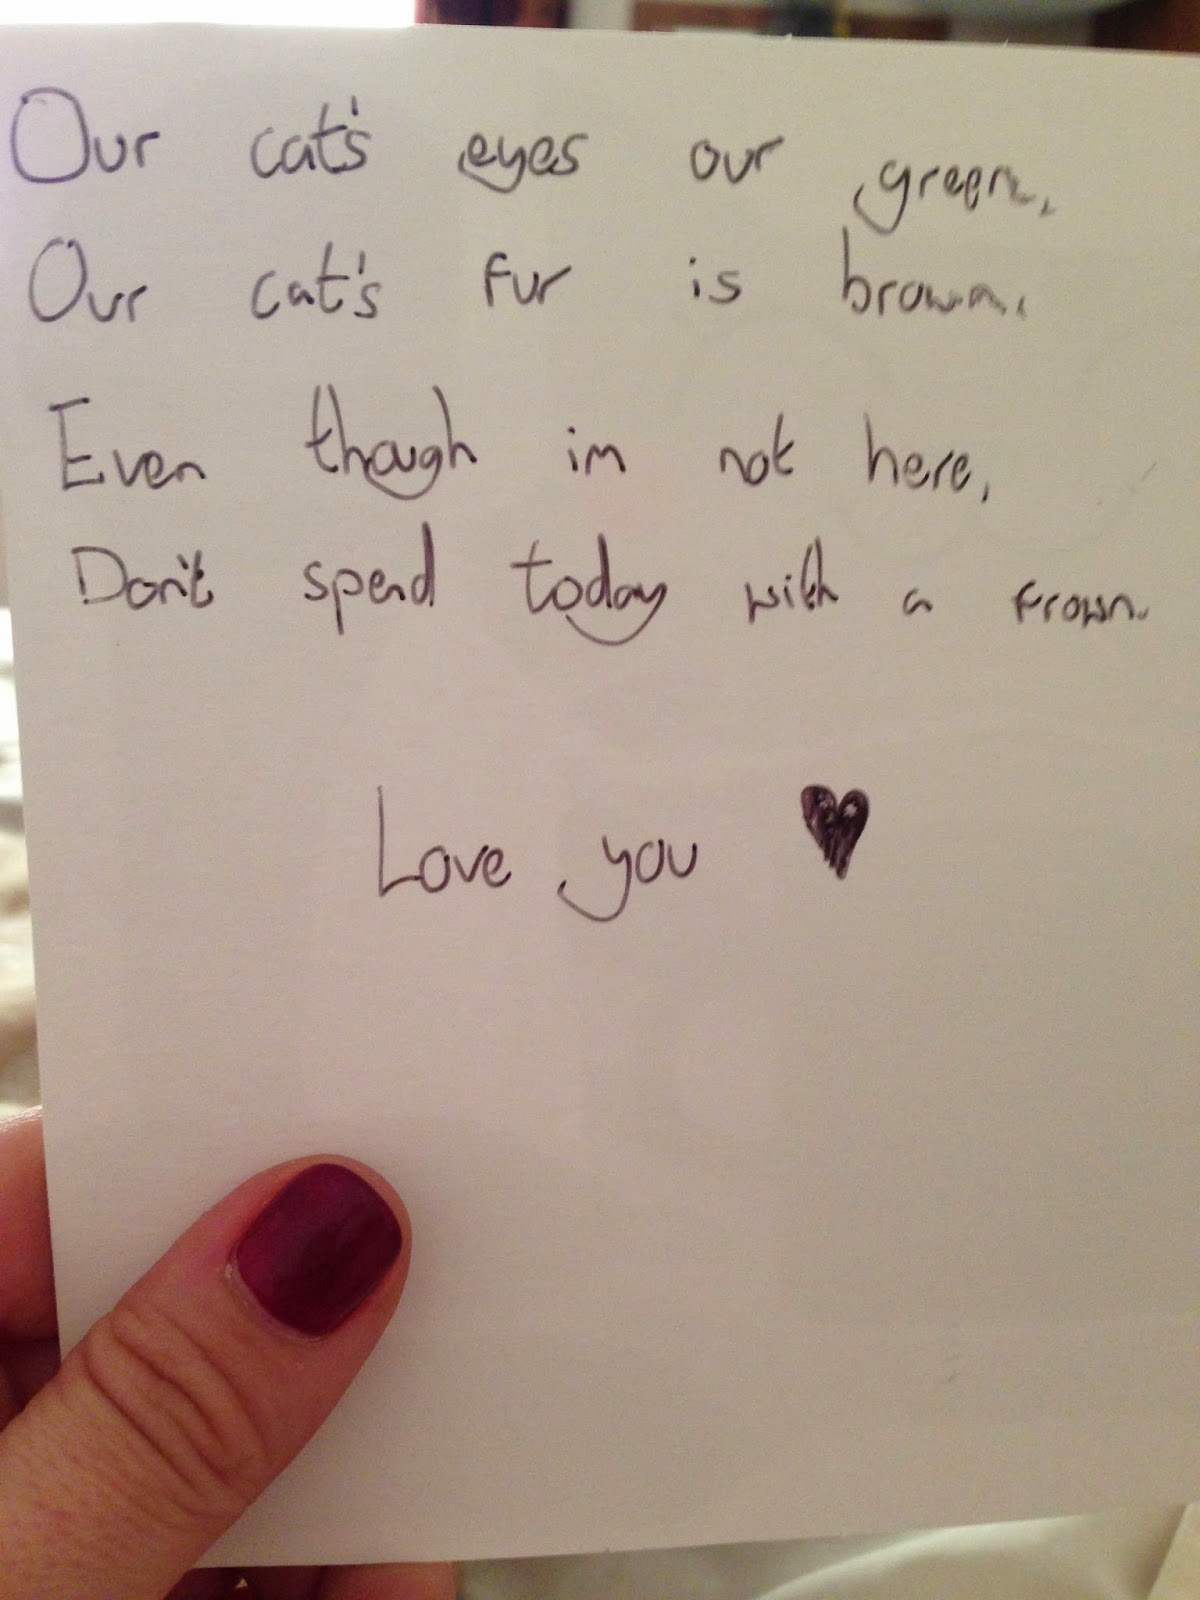 Our cat's eyes our green,
Our cat's fur is brown,
Even though im not here,
Don't spend today with a frown.
Love you ♥